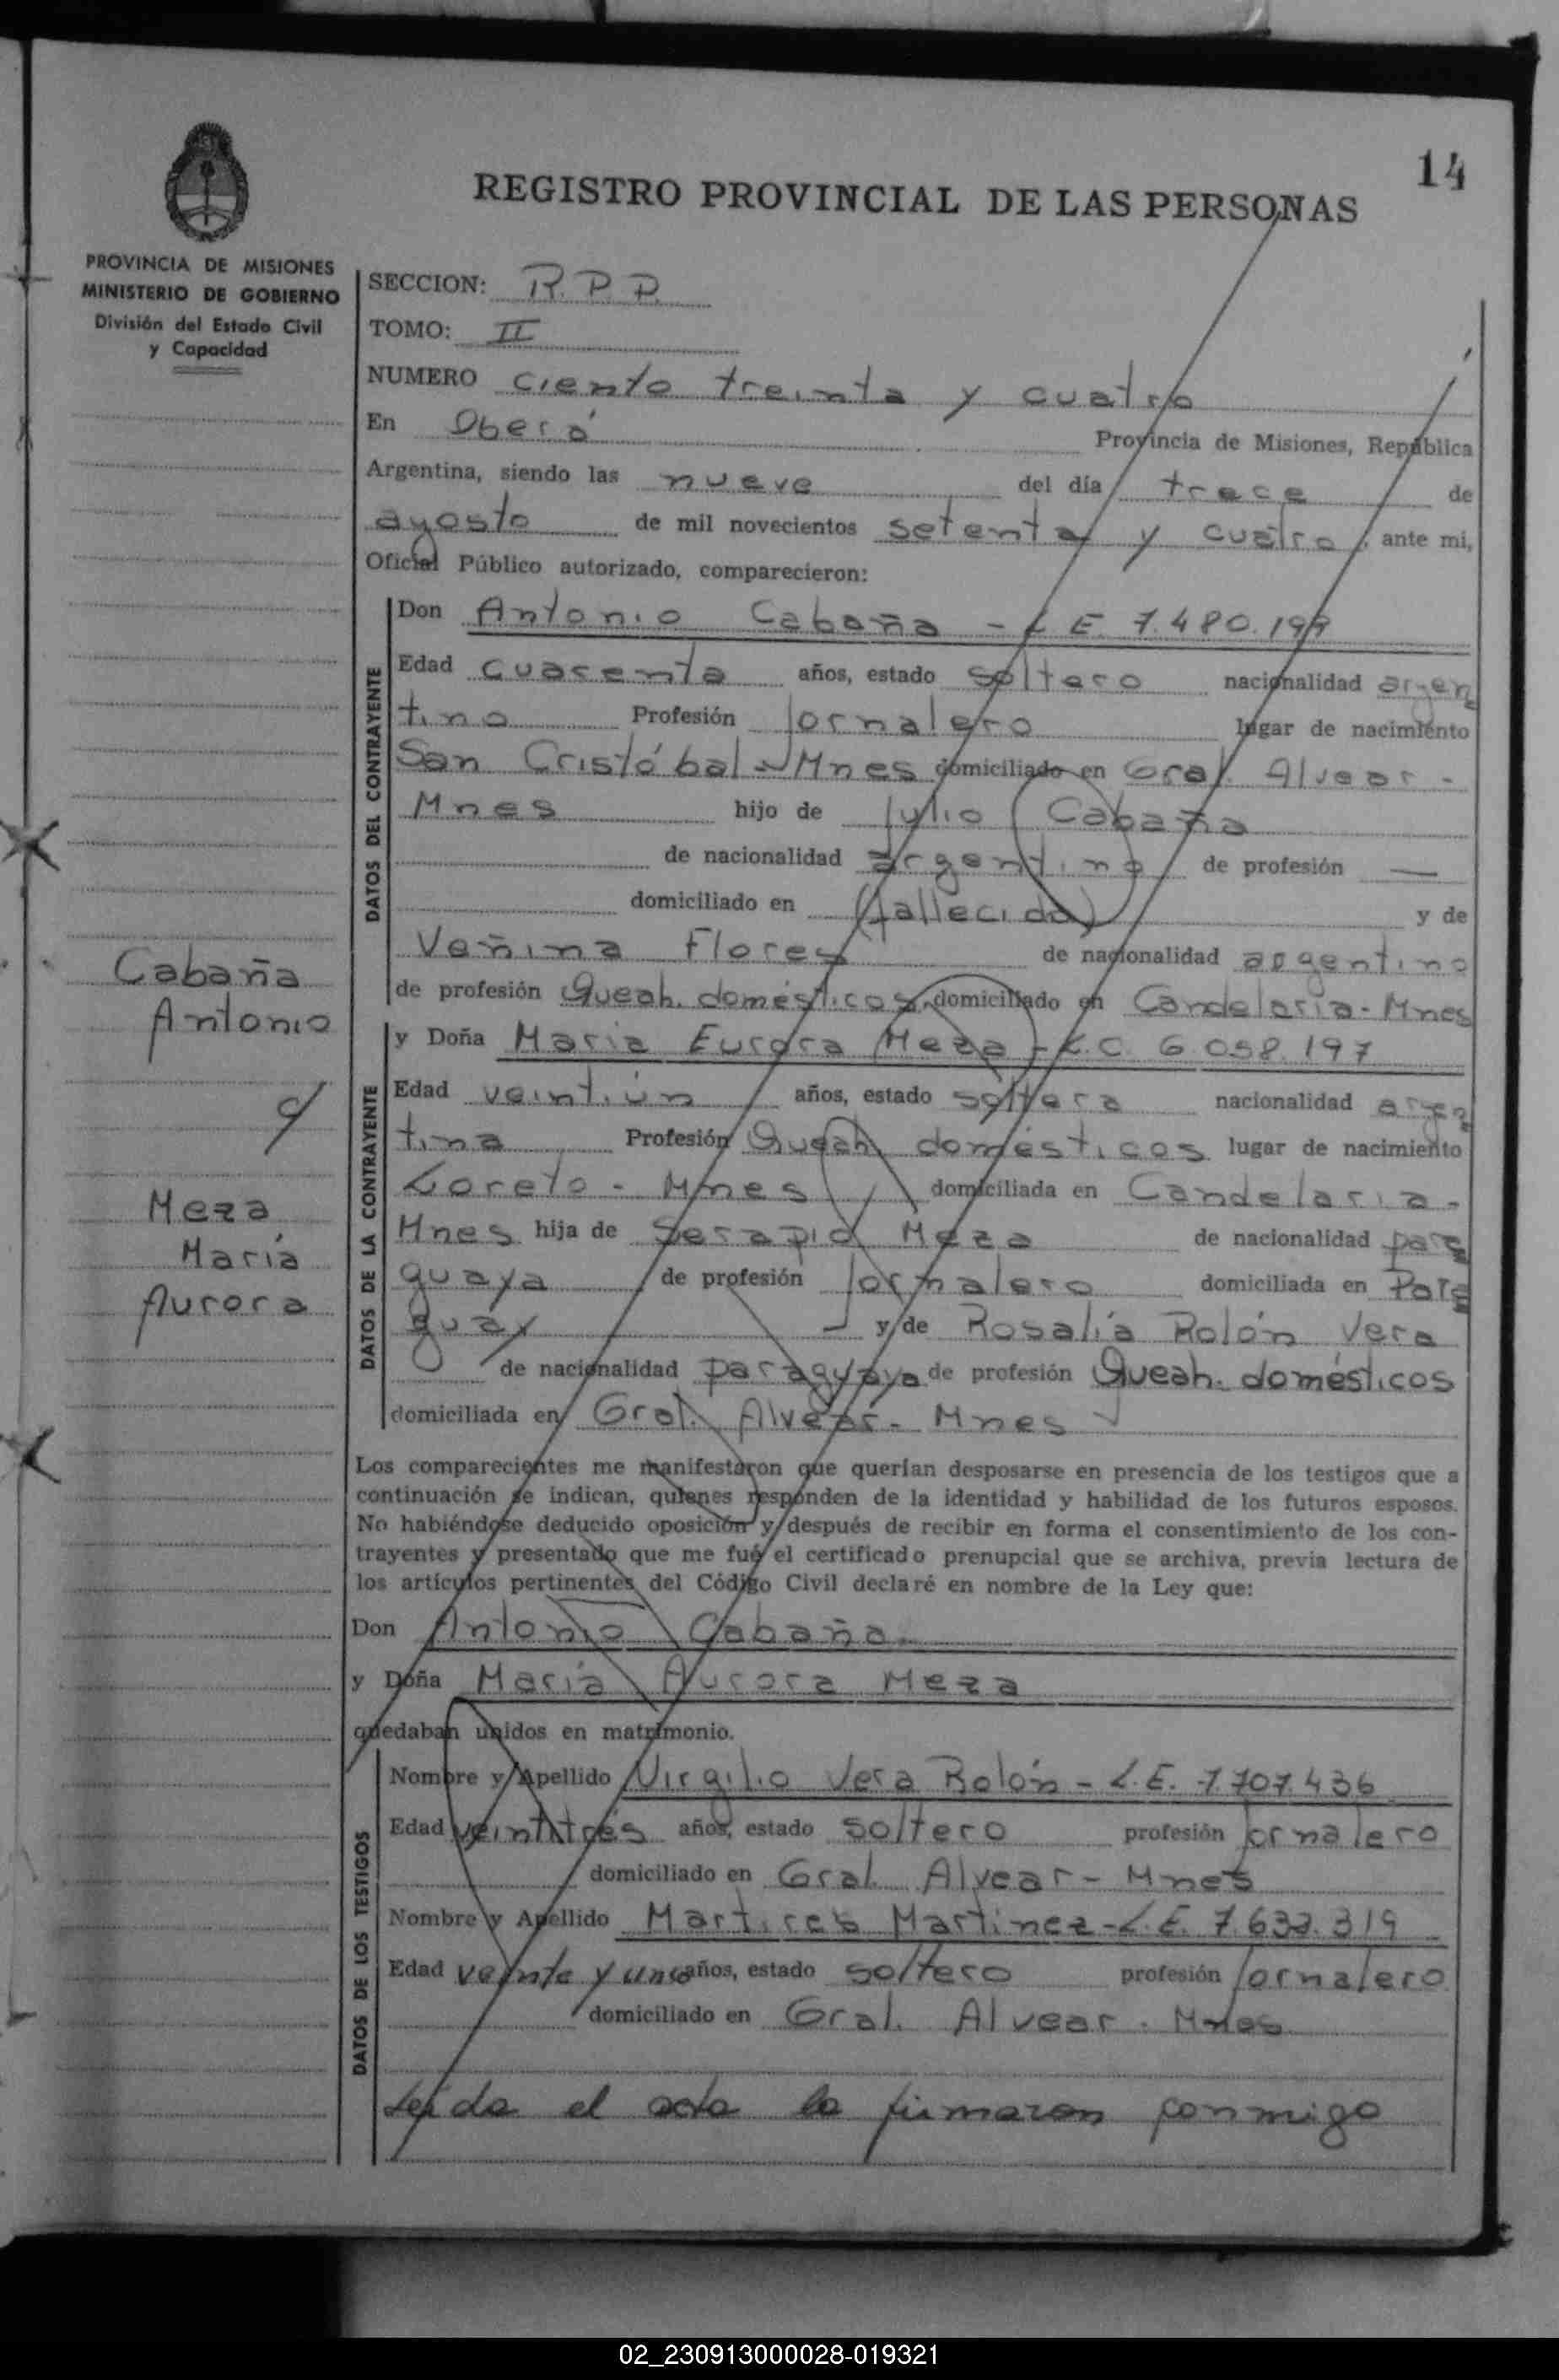 14
REGISTRO PROVINCIAL DE LAS PERSONAS
PROVINCIA DE MISIONES
MINISTERIO DE GOBIERNO
División del Estado Civil
y Capacidad
SECCION: R.P.P.
TOMO: II
NUMERO ciento treinta y cuatro
En Oberá Provincia de Misiones, República
Argentina, siendo las nueve del día trece de
agosto de mil novecientos setenta y cuatro, ante mi,
Oficial Público autorizado, comparecieron:
DATOS DEL CONTRAYENTE
Don Antonio Cabaña - L E. 7.480.199
Edad cuarenta años, estado soltero nacionalidad argen
tino Profesión Jornalero lugar de nacimiento
San Cristóbal - Mnes domiciliado en Gral. Alvear -
Mnes hijo de Julio Cabaña
de nacionalidad argentino de profesión —
domiciliado en (fallecido) y de
Veñina Flores de nacionalidad argentino
de profesión Queah. domésticos domiciliado en Candelaria - Mnes
Cabaña
Antonio
c/
Meza
María
Aurora
DATOS DE LA CONTRAYENTE
y Doña Maria Eurora Meza - L.C. 6.058.197
Edad veintiún años, estado soltera nacionalidad argen
tina Profesión Queah domésticos lugar de nacimiento
Loreto - Mnes domiciliada en Candelaria -
Mnes hija de Serapio Meza de nacionalidad para
guaya de profesión Jornalero domiciliada en Para
guay y de Rosalía Rolón Vera
de nacionalidad paraguaya de profesión Queah. domésticos
domiciliada en Gral. Alvear - Mnes
Los comparecientes me manifestaron que querían desposarse en presencia de los testigos que a
continuación se indican, quienes responden de la identidad y habilidad de los futuros esposos.
No habiéndose deducido oposición y después de recibir en forma el consentimiento de los con-
trayentes y presentado que me fué el certificado prenupcial que se archiva, previa lectura de
los artículos pertinentes del Código Civil declaré en nombre de la Ley que:
Don Antonio Cabaña.
y Doña María Aurora Meza
quedaban unidos en matrimonio.
DATOS DE LOS TESTIGOS
Nombre y Apellido Virgilio Vera Rolón - L.E. 7.707.436
Edad veintitrés años, estado soltero profesión Jornalero
domiciliado en Gral. Alvear - Mnes
Nombre y Apellido Martires Martinez - L.E. 7.632.319
Edad veinte y uno años, estado soltero profesión Jornalero
domiciliado en Gral. Alvear - Mnes
Leída el acta la firmaron conmigo
02_230913000028-019321